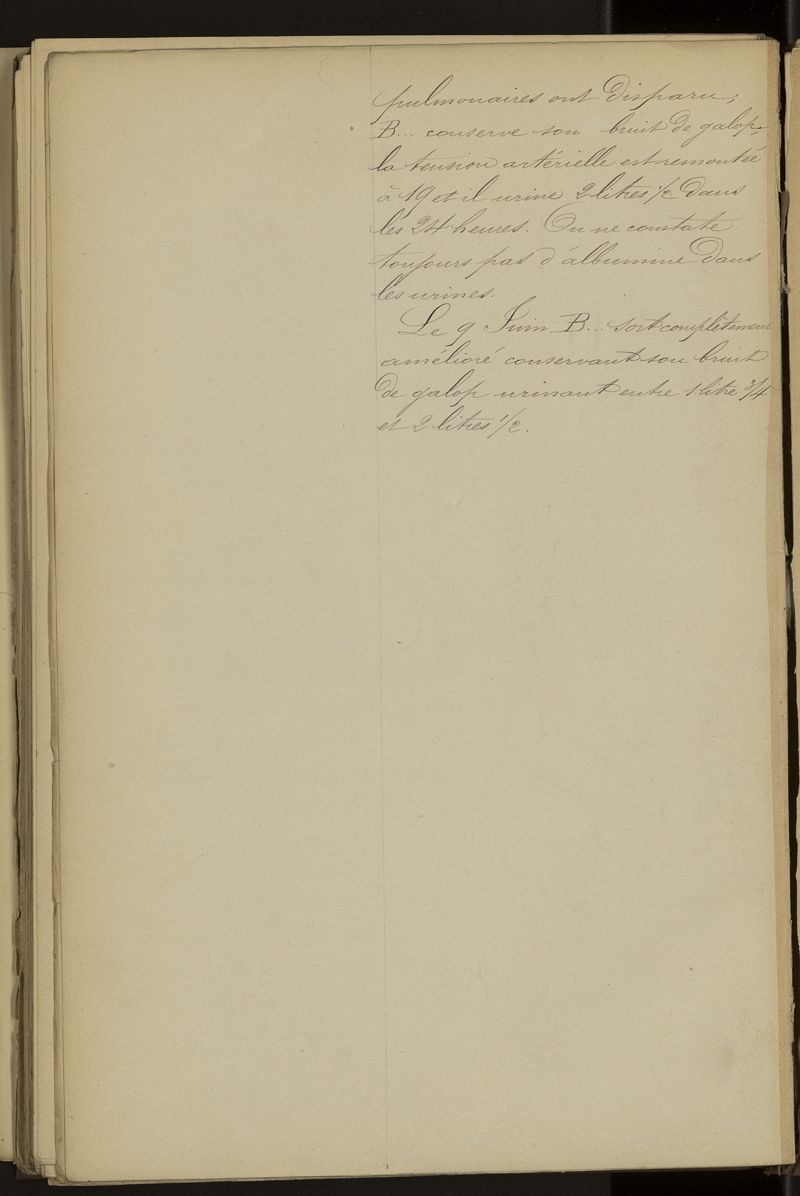 pulmonaires ont disparu ;
B... conserve son bruit de galop,
la tension artérielle est remontée
à 19 et il urine 2 litres 1/2 dans
les 24 heures. On ne constate
toujours pas d'albumine dans
les urines.
Le 9 Juin B... sort complètement
amélioré conservant son bruit
de galop urinant entre 1 litre 3/4
et 2 litres 1/2.